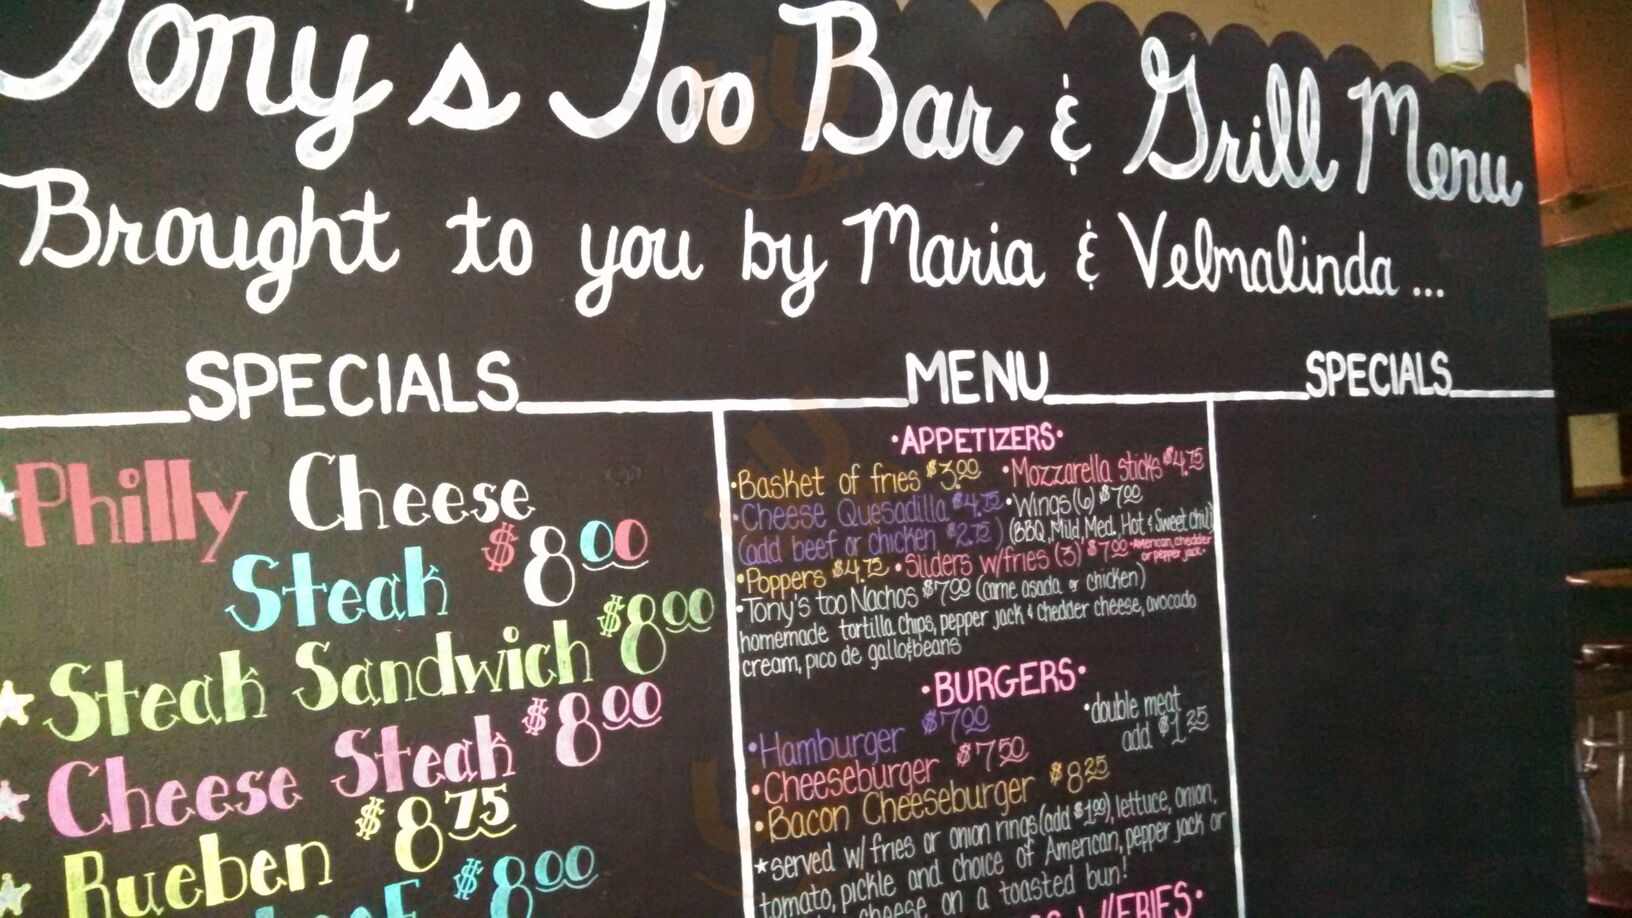 Tony's Too Bar & Grill Menu
Brought to you by Maria & Velmalinda...
SPECIALS
Philly Cheese
Steak $8.00
Steak Sandwich $8.00
Cheese Steak $8.00
Rueben $8.75
$8.00
MENU
•APPETIZERS•
•Basket of fries $3.00 •Mozzarella sticks $4.75
•Cheese Quesadilla $4.75 •Wings (6) $7.00
(add beef or chicken $2.75) (BBQ, Mild, Med, Hot & Sweet Chili)
•Poppers $4.75 •Sliders w/fries (3) $7.00 •American, chedder
or pepper jack•
•Tony's too Nachos $7.00 (carne asada or chicken)
homemade tortilla chips, pepper jack & chedder cheese, avocado
cream, pico de gallo & beans
•BURGERS•
•Hamburger $7.00 •double meat
add $1.25
•Cheeseburger $7.50
•Bacon Cheeseburger $8.25
★served w/ fries or onion rings (add $1.00), lettuce, onion,
tomato, pickle and choice of American, pepper jack or
cheese on a toasted bun!
W/FRIES•
SPECIALS